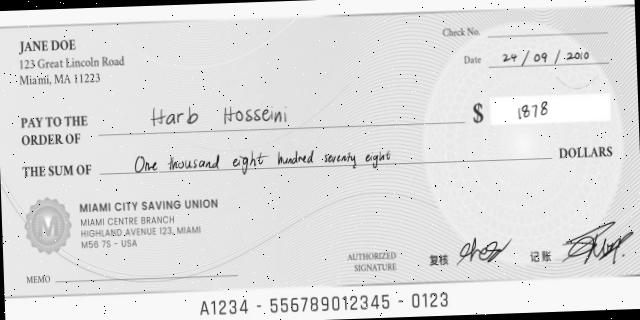 JANE DOE
123 Great Lincoln Road
Miami, MA 11223
Check No.
Date 24/09/2010
PAY TO THE
ORDER OF Harb Hosseini $ 1878
THE SUM OF One thousand eight hundred seventy eight DOLLARS
MIAMI CITY SAVING UNION
MIAMI CENTRE BRANCH
HIGHLAND AVENUE 123, MIAMI
M56 7S - USA
M
MEMO
AUTHORIZED
SIGNATURE
复核 记账
A1234 - 556789012345 - 0123